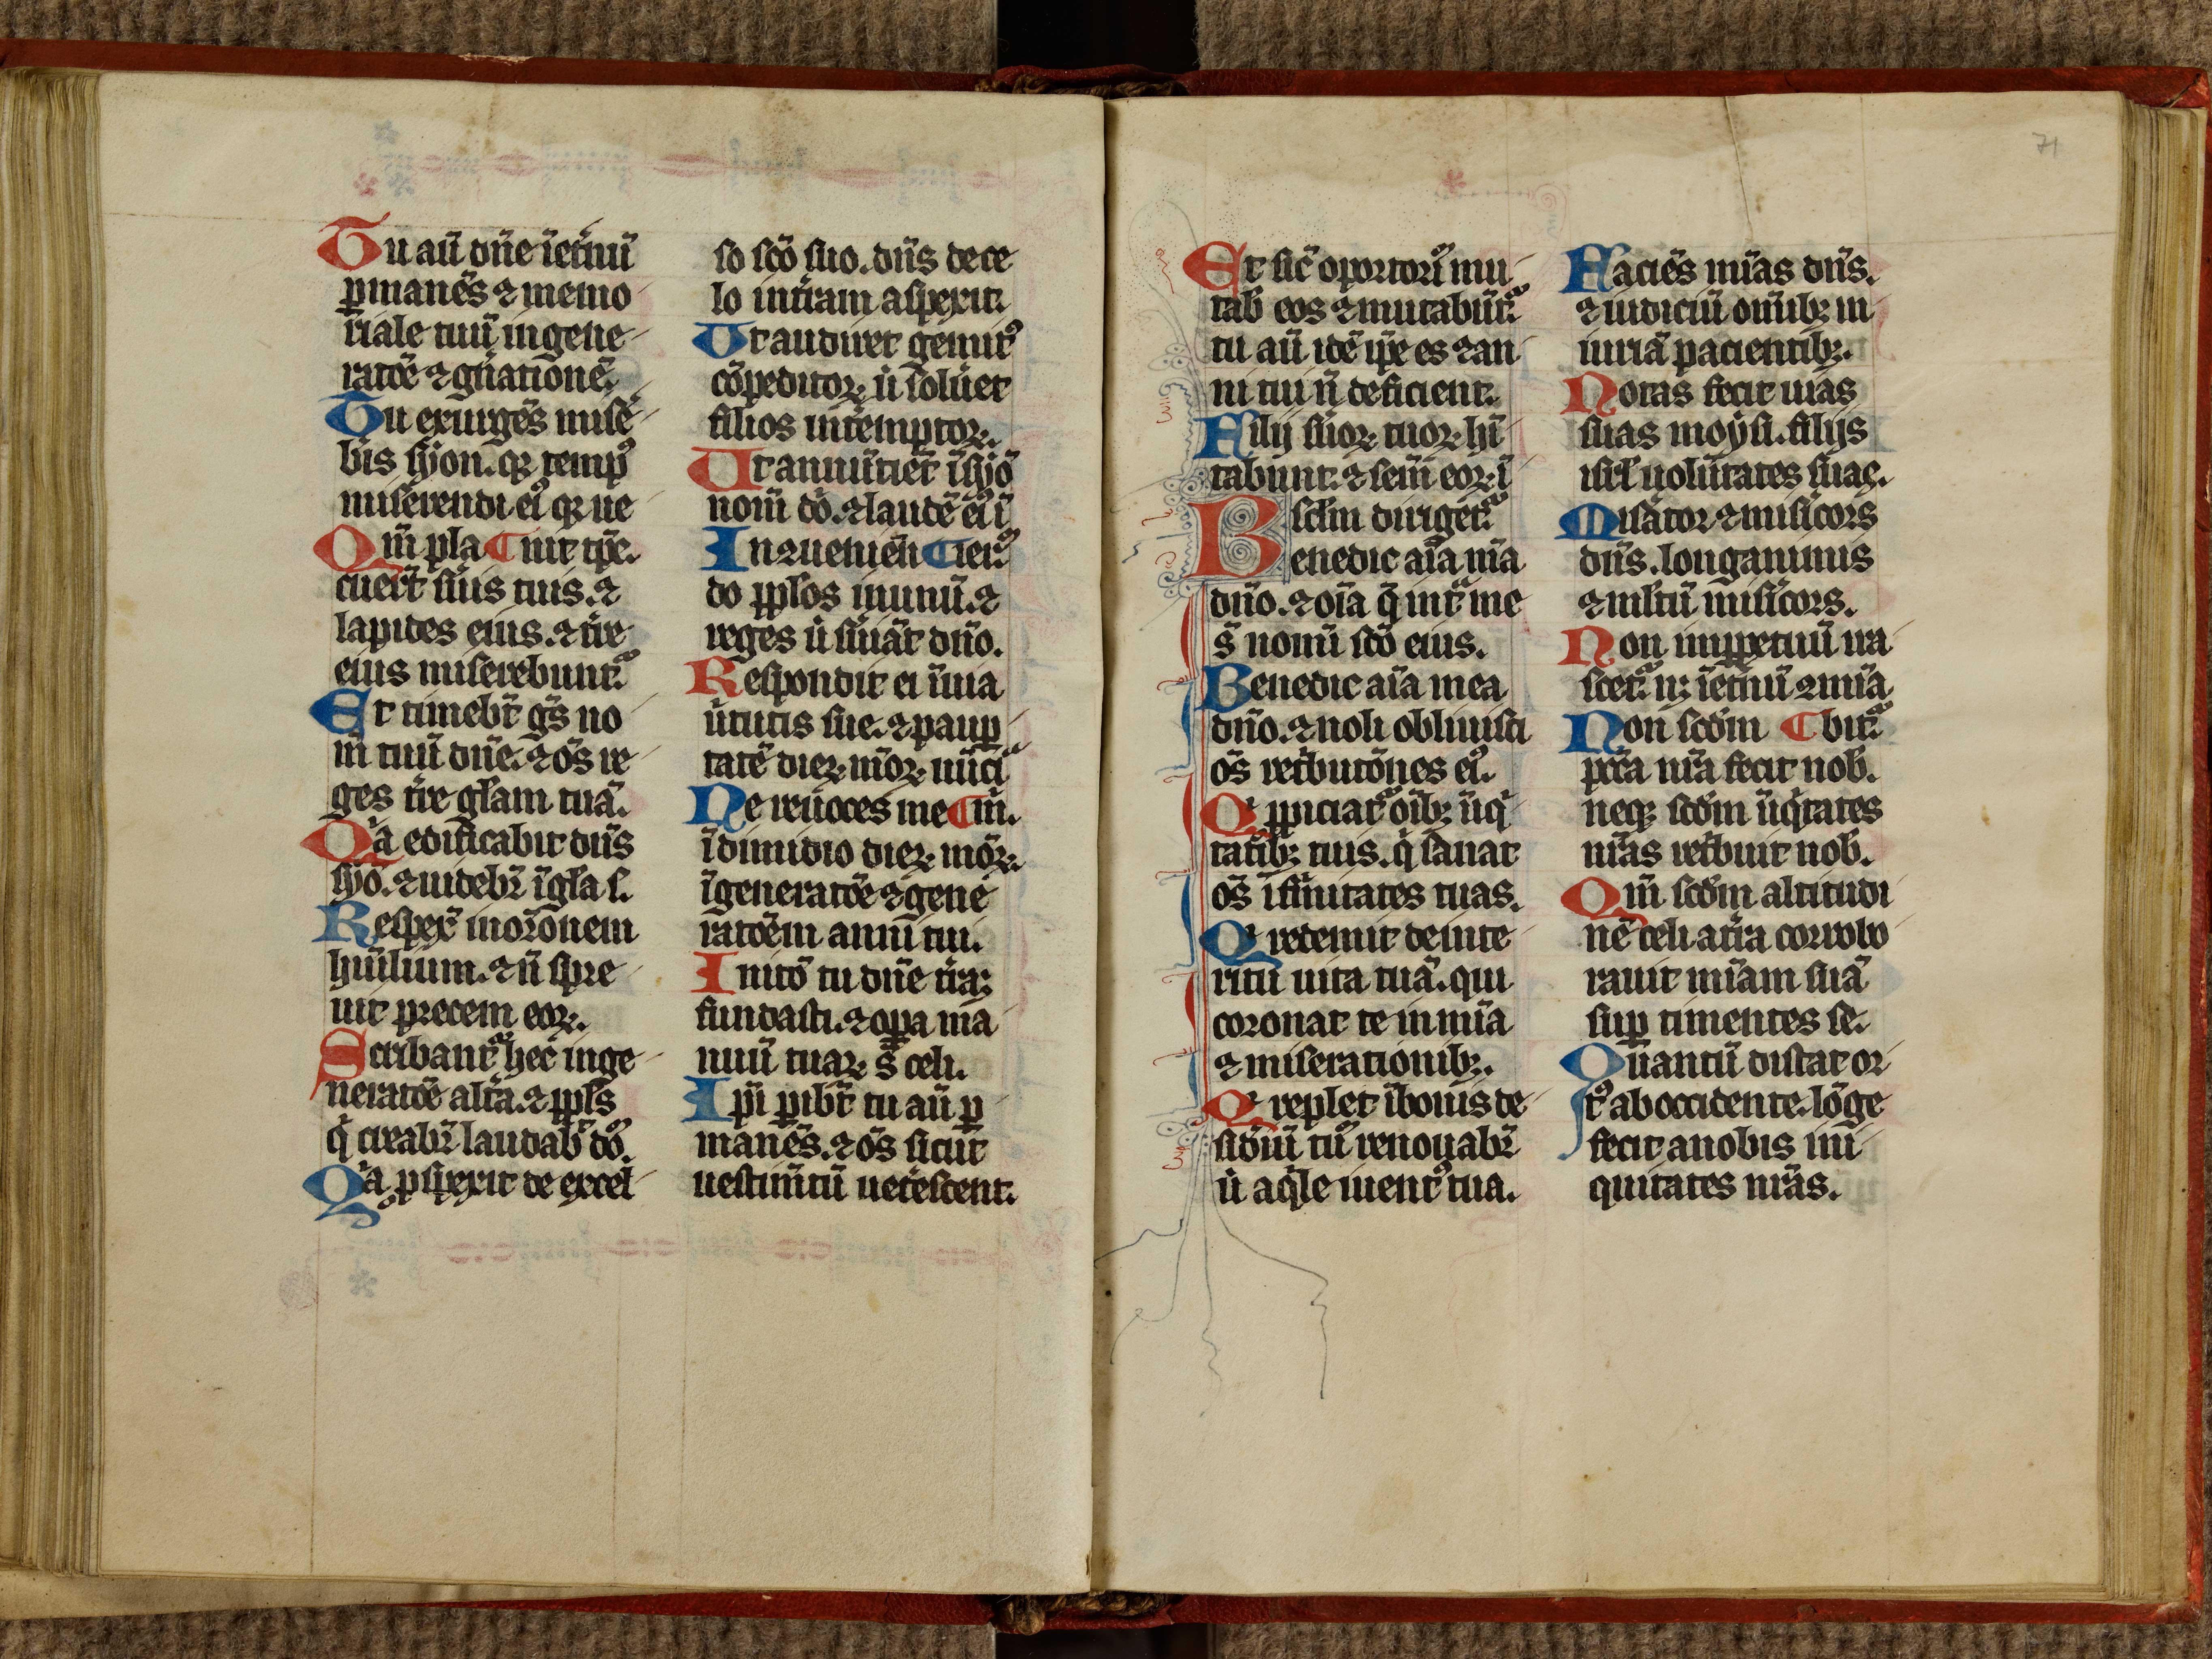 Tu aū dn̄e ieťnū
ꝑmanēs ⁊ memo
riale tuū in gene
ratōe ⁊ gn̄ationē.
Tu exurgēs mise
b̄is syon. qꝛ tempꝰ
miserendi eiꝰ qꝛ ue
Qm̄ pla ¶ nit tp̄c.
cuer̄t ẜuis tuis. ⁊
lapides eius. ⁊ tr̄e
eius miserebunt᷑.
Et timebt̄ gn̄s no
m̄ tuū dn̄e. ⁊ oēs re
ges tr̄e glām tuā.
Qꝛ edificabit dn̄s
syō. ⁊ uidebꝛ̄ ī gl̄a s.
Respex̄ in or̄onem
humiliū. ⁊ n̄ spre
uit precem eoꝝ.
Scribant᷑ hec̄ in ge
neratōe alťa. ⁊ ppl̄s
q̇ creabꝛ̄ laudab̄ dō.
Qꝛ ꝓspexit de excel
so scō suo. dn̄s de ce
lo in tr̄am aspexit.
Ut audiret gemitꝰ
cōpeditoꝝ ut̄ soluēt
filios intēmptoꝝ.
Ut annūtiēt ī syō
nom̄ dō. ⁊ laudē eiꝰ ī
In ꝯueniēn ¶ ierꝰ
do pplōs in unū. ⁊
reges ut̄ ẜuiāt dn̄o.
Respondit ei ī uia
ūtutis sue. ⁊ pauꝑ
tatē dieꝝ mōꝝ nūciᷓ
Ne reuoces me ¶ m̄.
ī dimidio dieꝝ mōꝝ.
ī generatōe ⁊ gene
ratōem anni tui.
Initō tu dn̄e tr̄aꝫ
fundasti. ⁊ oꝑa ma
nuū tuaꝝ s̄ celi.
Ipī ꝑibt̄ tu aū ꝑ
manēs. ⁊ oēs sicut
uestim̄tū ueťescent.
Et sic̄ oportoriū mu
tab̄ eos ⁊ mutabūt᷑.
tu aū idē ip̄e es ⁊ an
ni tui n̄ deficient.
Filij ẜuoꝝ tuoꝝ hī
tabunt. ⁊ sem̄ eoꝝ ī
sclm̄ diriget᷑.
Benedic aīa mīa
dn̄o. ⁊ oīa q̄ int᷑ me
s̄ nomī scō eius.
Benedic aīa mea
dn̄o. ⁊ noli obliuisci
oēs ret̄butōnes eiꝰ.
Qꝛ ꝓpiciat᷑ oīb; īiq̇
tatib; tuis. q̇ sanat
oēs ī firmitates tuas.
Qꝛ redemit de inte
ritu uita tuā. qui
coronat te in mīa
⁊ miserationib;.
Qꝛ replet ī bonis de
sidiū tuū renouabꝛ̄
ut̄ aq̇le iuentꝰ tua.
Faciēs mīas dn̄s.
⁊ iudiciū om̄ib; in
iuriā pacientib;.
Notas fecit uias
suas moysi. filijs
isrl̄ uolūtates suas.
Misātor ⁊ misicors
dn̄s. longanimis
⁊ mltū misicors.
Non in ꝑpetuū ira
scet᷑. n; ī etnū ⁊ mīa
Non scdm̄ ¶ bit᷑
pccā nr̄a fecit nob̄.
neq; scdm̄ īiq̇tates
nr̄as ret̄buit nob̄.
Qm̄ scdm̄ altitudi
nē celi atr̄a corrobo
rauit mīam suā
suꝑ timentes se.
Quantū distat or
tꝰ ab occidente. lōge
fecit a nobis ini
quitates nr̄as.
71